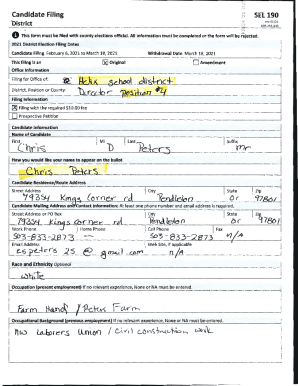 Candidate Filing
District
SEL 190
This form must be filed with county elections official. All information must be completed or the form will be rejected.
2021 District Election Filing Dates
Candidate Filing: February 6, 2021 to March 18, 2021 Withdrawal Date: March 19, 2021
This Filing is an Original Amendment
Office Information
Filing for Office of: Helix school district
District, Position or County: Director position #4
Filing Information
Filing with the required $10.00 fee
Prospective Petition
Candidate Information
Name of Candidate
First MI Last Suffix
Chris D Peters mr
How you would like your name to appear on the ballot
Chris Peters
Candidate Residence/Route Address
Street Address City State Zip
79354 Kings Corner rd Pendleton Or 97801
Candidate Mailing Address and Contact Information: At least one phone number and email address is required.
Street Address or PO Box City State Zip
79354 Kings Corner rd Pendleton or 97801
Work Phone Home Phone Cell Phone Fax
503-833-2873 — 503-833-2873 n/A
Email Address Web Site, if applicable
cspeters25@gmail.com n/A
Race and Ethnicity Optional
white
Occupation (present employment) If no relevant experience, None or NA must be entered.
Farm Hand / Peters Farm
Occupational Background (previous employment) If no relevant experience, None or NA must be entered.
NW Laborers Union / Civil construction work